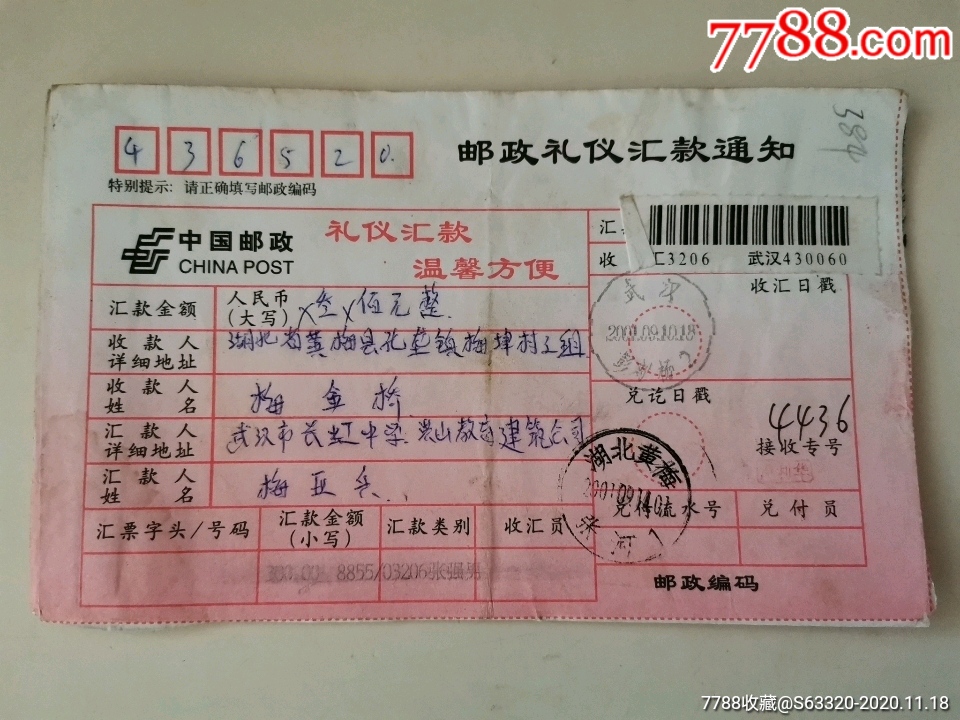 7788.com
384
4 3 6 5 2 0.
邮政礼仪汇款通知
特别提示: 请正确填写邮政编码
中国邮政
CHINA POST
礼仪汇款
温馨方便
汇
收 汇3206 武汉430060
收汇日戳
汇款金额 人民币(大写) 叁 佰元整
武汉
2001.09.10.18
收款人详细地址 湖北省黄梅县孔垄镇梅埠村 组
收款人姓名 梅金桥
兑讫日戳
4436
接收专号
汇款人详细地址 武汉市长虹中学 洪山教育建筑公司
汇款人姓名 梅亚
湖北黄梅
2001.09.14
汇票字头/号码 汇款金额(小写) 汇款类别 收汇员 兑付流水号 兑付员
300.00 8855/03206张强男
邮政编码
7788收藏@S63320-2020.11.18